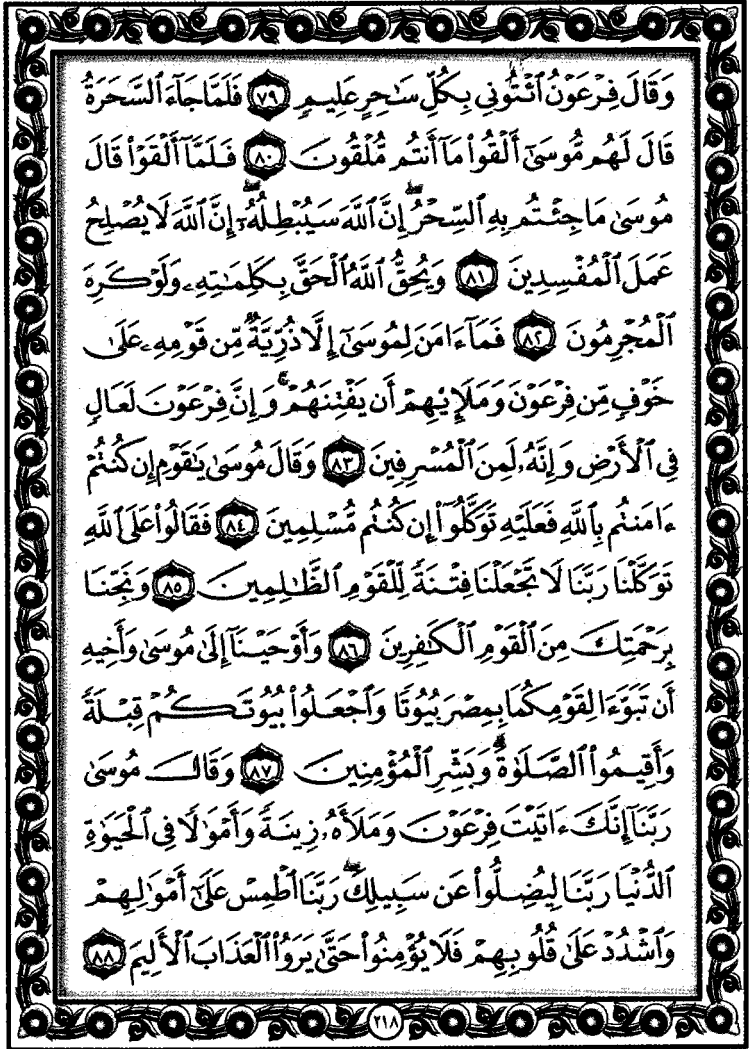 وَقَالَ فِرْعَوْنُ ٱئْتُونِي بِكُلِّ سَٰحِرٍ عَلِيمٍ ٧٩ فَلَمَّا جَآءَ ٱلسَّحَرَةُ
قَالَ لَهُم مُّوسَىٰٓ أَلْقُوا۟ مَآ أَنتُم مُّلْقُونَ ٨٠ فَلَمَّآ أَلْقَوْا۟ قَالَ
مُوسَىٰ مَا جِئْتُم بِهِ ٱلسِّحْرُ ۖ إِنَّ ٱللَّهَ سَيُبْطِلُهُۥٓ ۖ إِنَّ ٱللَّهَ لَا يُصْلِحُ
عَمَلَ ٱلْمُفْسِدِينَ ٨١ وَيُحِقُّ ٱللَّهُ ٱلْحَقَّ بِكَلِمَٰتِهِۦ وَلَوْ كَرِهَ
ٱلْمُجْرِمُونَ ٨٢ فَمَآ ءَامَنَ لِمُوسَىٰٓ إِلَّا ذُرِّيَّةٌ مِّن قَوْمِهِۦ عَلَىٰ
خَوْفٍ مِّن فِرْعَوْنَ وَمَلَإِي۟هِمْ أَن يَفْتِنَهُمْ ۚ وَإِنَّ فِرْعَوْنَ لَعَالٍ
فِى ٱلْأَرْضِ وَإِنَّهُۥ لَمِنَ ٱلْمُسْرِفِينَ ٨٣ وَقَالَ مُوسَىٰ يَٰقَوْمِ إِن كُنتُمْ
ءَامَنتُم بِٱللَّهِ فَعَلَيْهِ تَوَكَّلُوٓا۟ إِن كُنتُم مُّسْلِمِينَ ٨٤ فَقَالُوا۟ عَلَى ٱللَّهِ
تَوَكَّلْنَا رَبَّنَا لَا تَجْعَلْنَا فِتْنَةً لِّلْقَوْمِ ٱلظَّٰلِمِينَ ٨٥ وَنَجِّنَا
بِرَحْمَتِكَ مِنَ ٱلْقَوْمِ ٱلْكَٰفِرِينَ ٨٦ وَأَوْحَيْنَآ إِلَىٰ مُوسَىٰ وَأَخِيهِ
أَن تَبَوَّءَا لِقَوْمِكُمَا بِمِصْرَ بُيُوتًا وَٱجْعَلُوا۟ بُيُوتَكُمْ قِبْلَةً
وَأَقِيمُوا۟ ٱلصَّلَوٰةَ ۗ وَبَشِّرِ ٱلْمُؤْمِنِينَ ٨٧ وَقَالَ مُوسَىٰ
رَبَّنَآ إِنَّكَ ءَاتَيْتَ فِرْعَوْنَ وَمَلَأَهُۥ زِينَةً وَأَمْوَٰلًا فِى ٱلْحَيَوٰةِ
ٱلدُّنْيَا رَبَّنَا لِيُضِلُّوا۟ عَن سَبِيلِكَ ۖ رَبَّنَا ٱطْمِسْ عَلَىٰٓ أَمْوَٰلِهِمْ
وَٱشْدُدْ عَلَىٰ قُلُوبِهِمْ فَلَا يُؤْمِنُوا۟ حَتَّىٰ يَرَوُا۟ ٱلْعَذَابَ ٱلْأَلِيمَ ٨٨
٢١٨